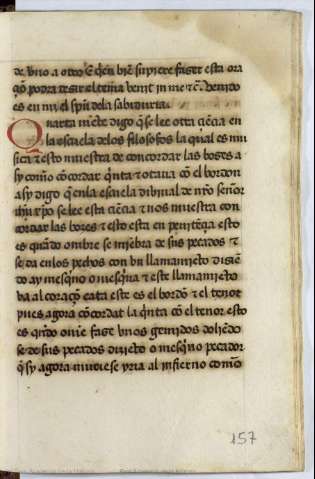 de vno a otro E quien bien supiere faser esta ora
çõ podra desir el tema venit in me &c. Venido
es en mi el spũ dela sabiduria.
Quarta mẽte digo q̃ se lee otra ciẽcia en
la escuela delos filosofos la qual es mu
sica & esto muestra de concordar las boses a
sy como cõcordar q̃nta & otaua cõ el bordon
asy digo q̃ enla escuela diuinal de nr̃o señor
ihũ xp̃o se lee esta ciẽcia & nos muestra con
cordar las bozes & esto esta en penitẽçia esto
es quãdo ombre se miẽbra de sus pecados &
se da enlos pechos con vn llamamiẽto disiẽ
do ay mesq̃no o mesq̃na & este llamamiẽto
va al coraçõ cata este es el bordõ & el tenor
pues agora cõcordat la q̃nta cõ el tenor esto
es q̃ndo om̃e fase vnos gemidos doliẽdo
se de sus pecados diziẽdo o mesq̃no pecador
q̃ sy agora muriese yria al infierno como
157